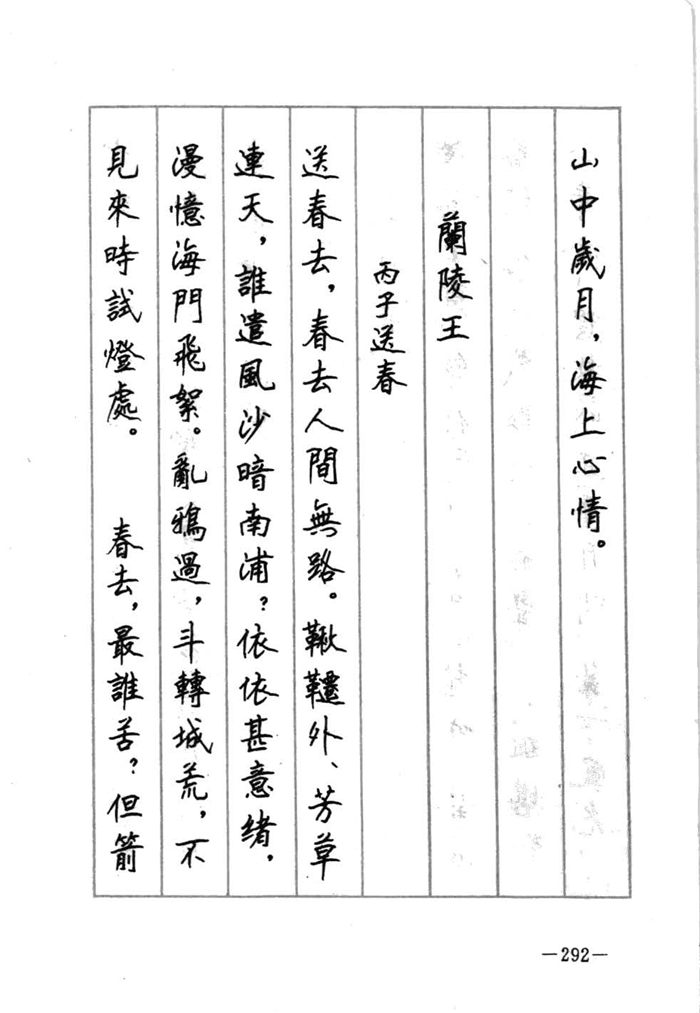 山中歲月，海上心情。
蘭陵王
丙子送春
送春去，春去人間無路。鞦韆外、芳草
連天，誰遣風沙暗南浦？依依甚意緒，
漫憶海門飛絮。亂鴉過，斗轉城荒，不
見來時試燈處。　　春去，最誰苦？但箭
—292—